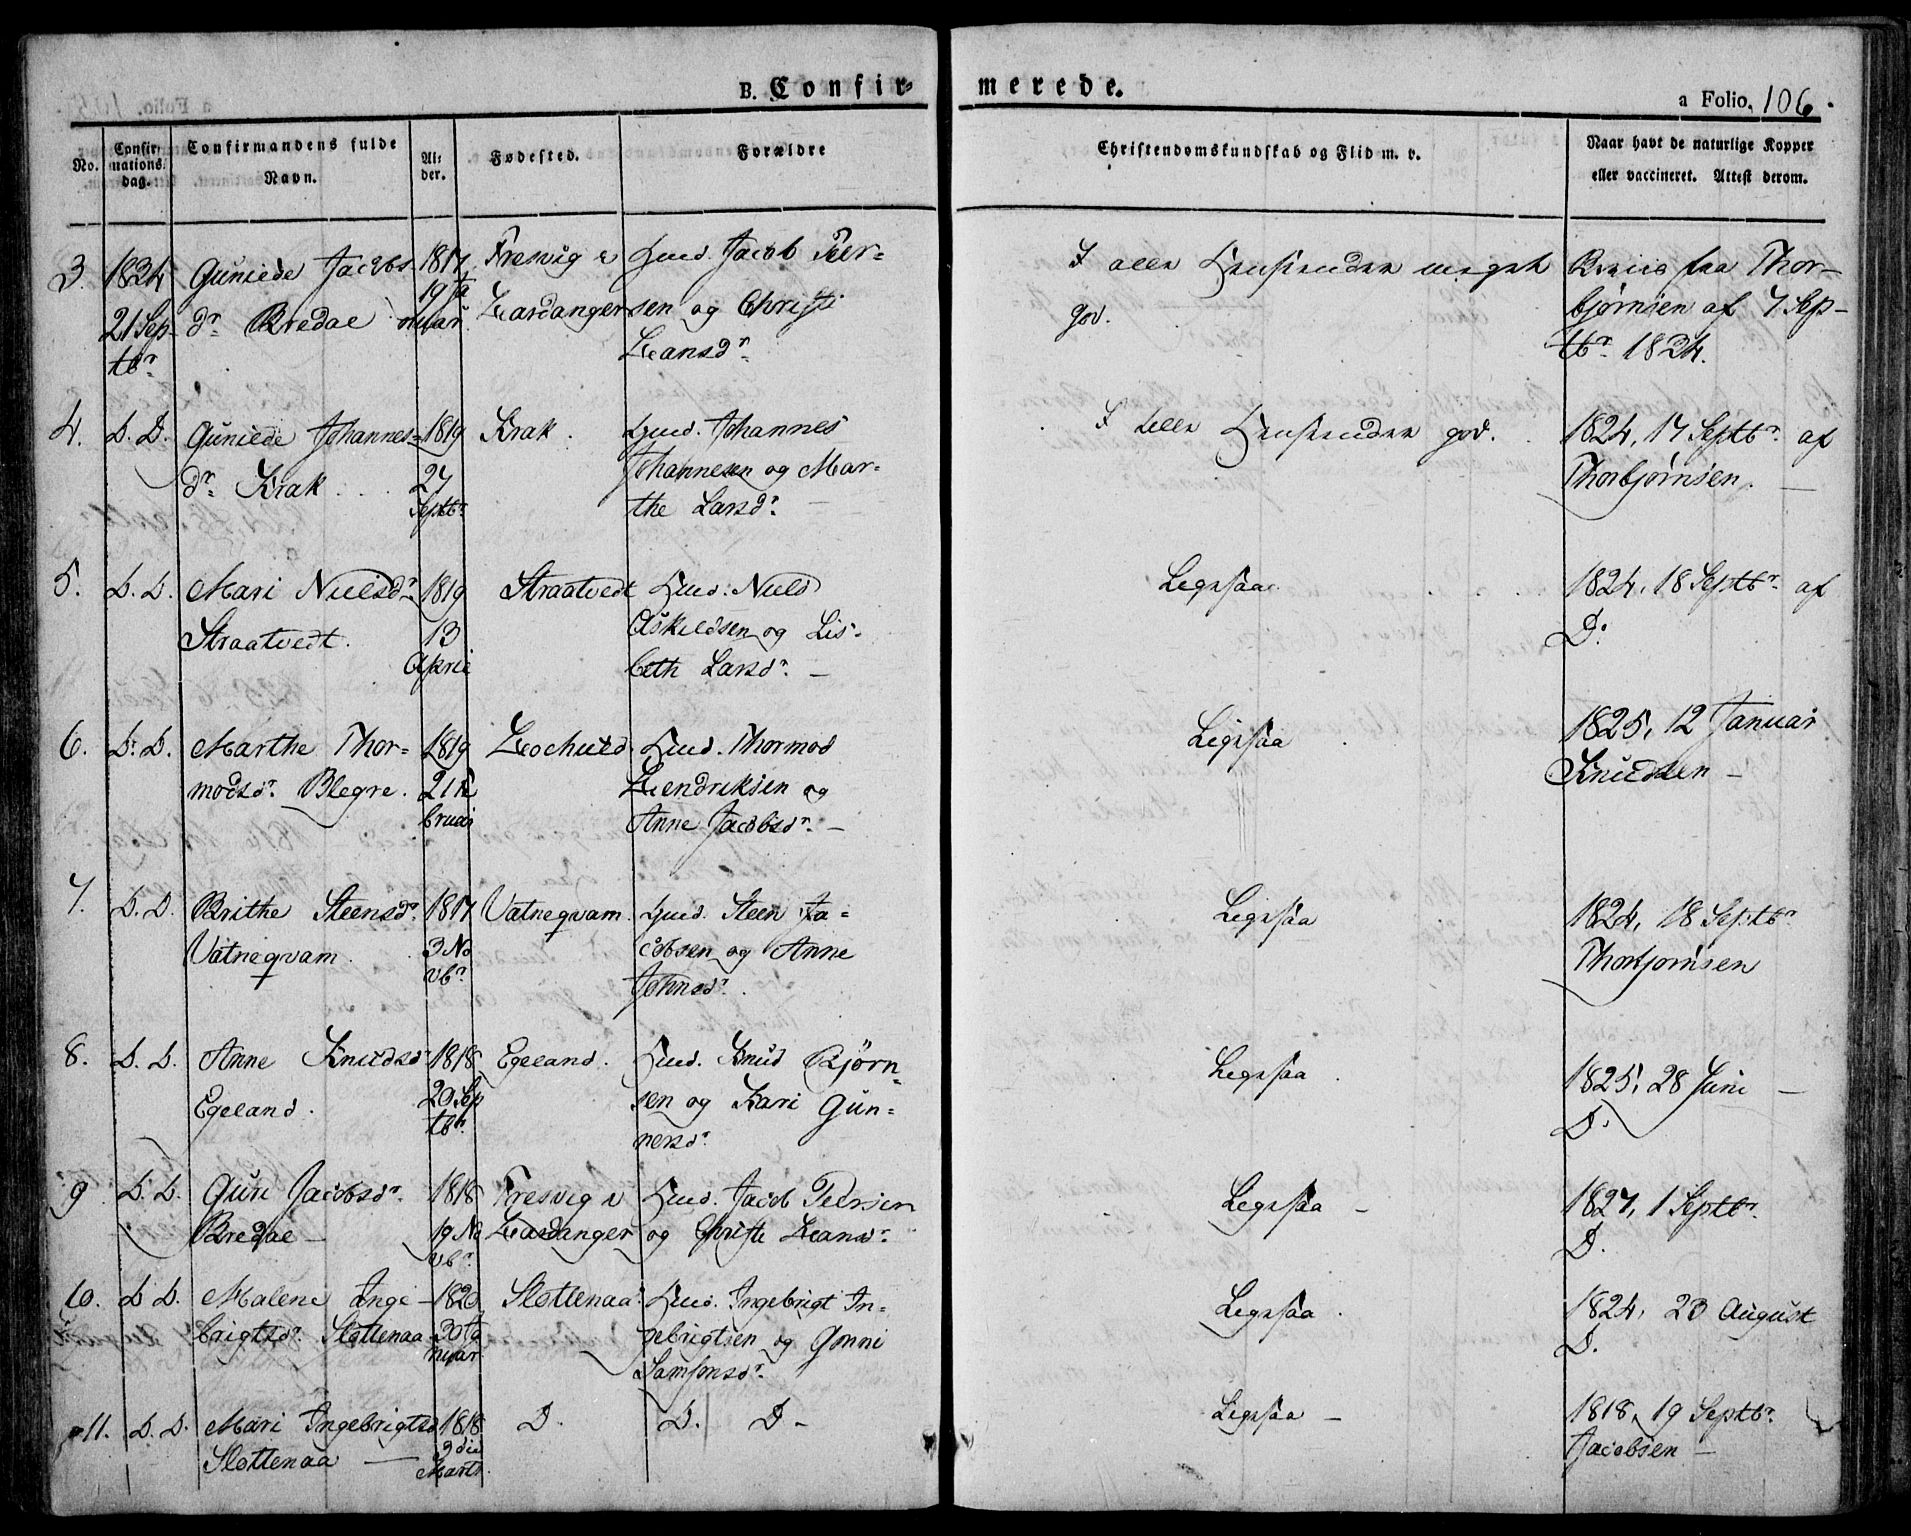 B. Confir-
merede.
a Folio. 106.
No.
Confir-
mations
dag.
Confirmandens fulde
Navn.
Al-
der.
Fødested.
Forældre
Christendomskundskab og Flid m. v.
Naar havt de naturlige Kopper
eller vaccineret. Attest derom.
3. 1834
21 Sep-
tbr
Guniede Jacobs
dr Bredal
1817
19 Ja
nuar
Fresvig i
Hardanger
Gmd. Jacob Peder-
sen og Christi
Hansdr
I alle Henseender meget
god.
Bevis fra Thor-
bjørnsen af 7 Sep-
tbr 1824.
4. D. D.
Guniede Johannes-
dr Krak
1819
27
Septbr
Krak.
Gmd. Johannes
Johannesen og Mar-
the Larsdr. —
I alle Henseender god.
1824, 17 Septbr. af
Thorbjørnsen. —
5. D. D.
Mari Nielsdr
Straatvedt.
1819
13
April
Straatvedt
Gmd. Niels
Askildsen og Lis-
beth Larsdr. —
Ligesaa
1824, 18 Septbr. af
D.
6. D. D.
Marthe Thor-
modsdr. Blegre.
1819
21 Fe
bruar
Gmd. Thormod
Hendriksen og
Anne Jacobsdr. —
Ligesaa
1825, 12 Januar
Knudsen —
7. D. D.
Brithe Steensdr.
Vatneqvam
1817
3 No
vbr
Vatneqvam.
Gmd. Steen Ja-
cobsen og Anne
Johnsdr.
Ligesaa
1824, 18 Septbr
Thorbjørnsen
8. D. D.
Anne Knudsd
Egeland.
1818
20 Sep
tbr.
Egeland.
Gmd. Knud Bjørn-
sen og Kari Gun-
nersdr.
Ligesaa
1825, 28 Juni —
D.
9 D. D.
Guri Jacobsdr.
Bredal —
1818
19 No
vbr.
Fresvig i
Hardanger
Gmd. Jacob Pedersen
og Christi Hansdr.
Ligesaa —
1827, 1 Septbr.
D.
10. D D.
Malene Inge-
brigtsdr. Slottenaa
1820
30 Ja
nuar
Slottenaa.
Gmd. Ingebrigt In-
gebrigtsen og Gønni
Samsonsdr.
Ligesaa.
1824, 23 August
D.
11. D. D.
Mari Ingebrigtsd
Slottenaa —
1818
9 die
Marts.
D.
D. D —
Ligesaa —
1818, 19 Septbr.
Jacobsen —